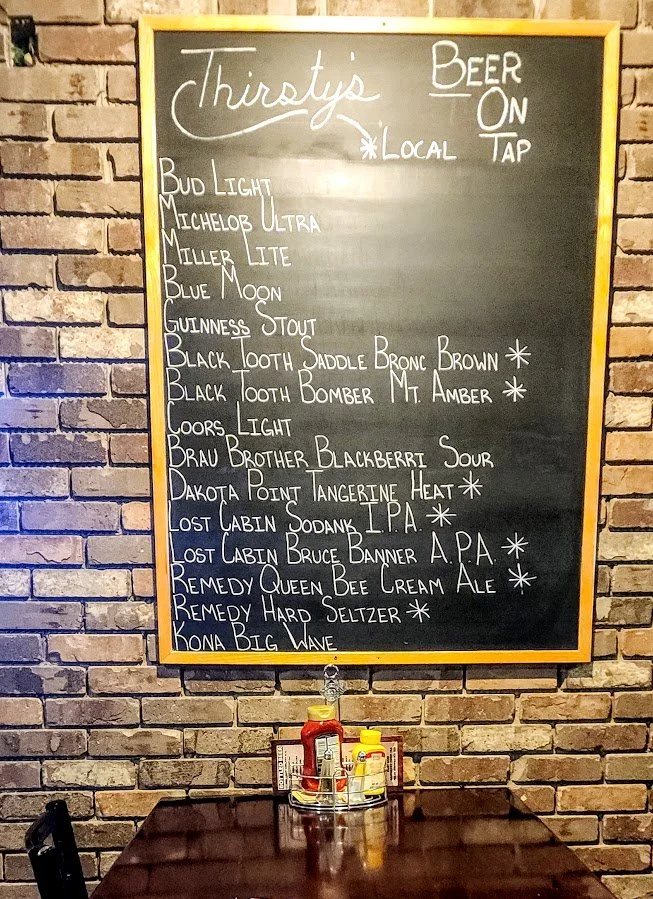 Thirsty's
BEER
ON
TAP
*LOCAL
BUD LIGHT
MICHELOB ULTRA
MILLER LITE
BLUE MOON
GUINNESS STOUT
BLACK TOOTH SADDLE BRONC BROWN *
BLACK TOOTH BOMBER MT. AMBER *
COORS LIGHT
BRAU BROTHER BLACKBERRI SOUR
DAKOTA POINT TANGERINE HEAT *
LOST CABIN SODANK I.P.A. *
LOST CABIN BRUCE BANNER A.P.A. *
REMEDY QUEEN BEE CREAM ALE *
REMEDY HARD SELTZER *
KONA BIG WAVE